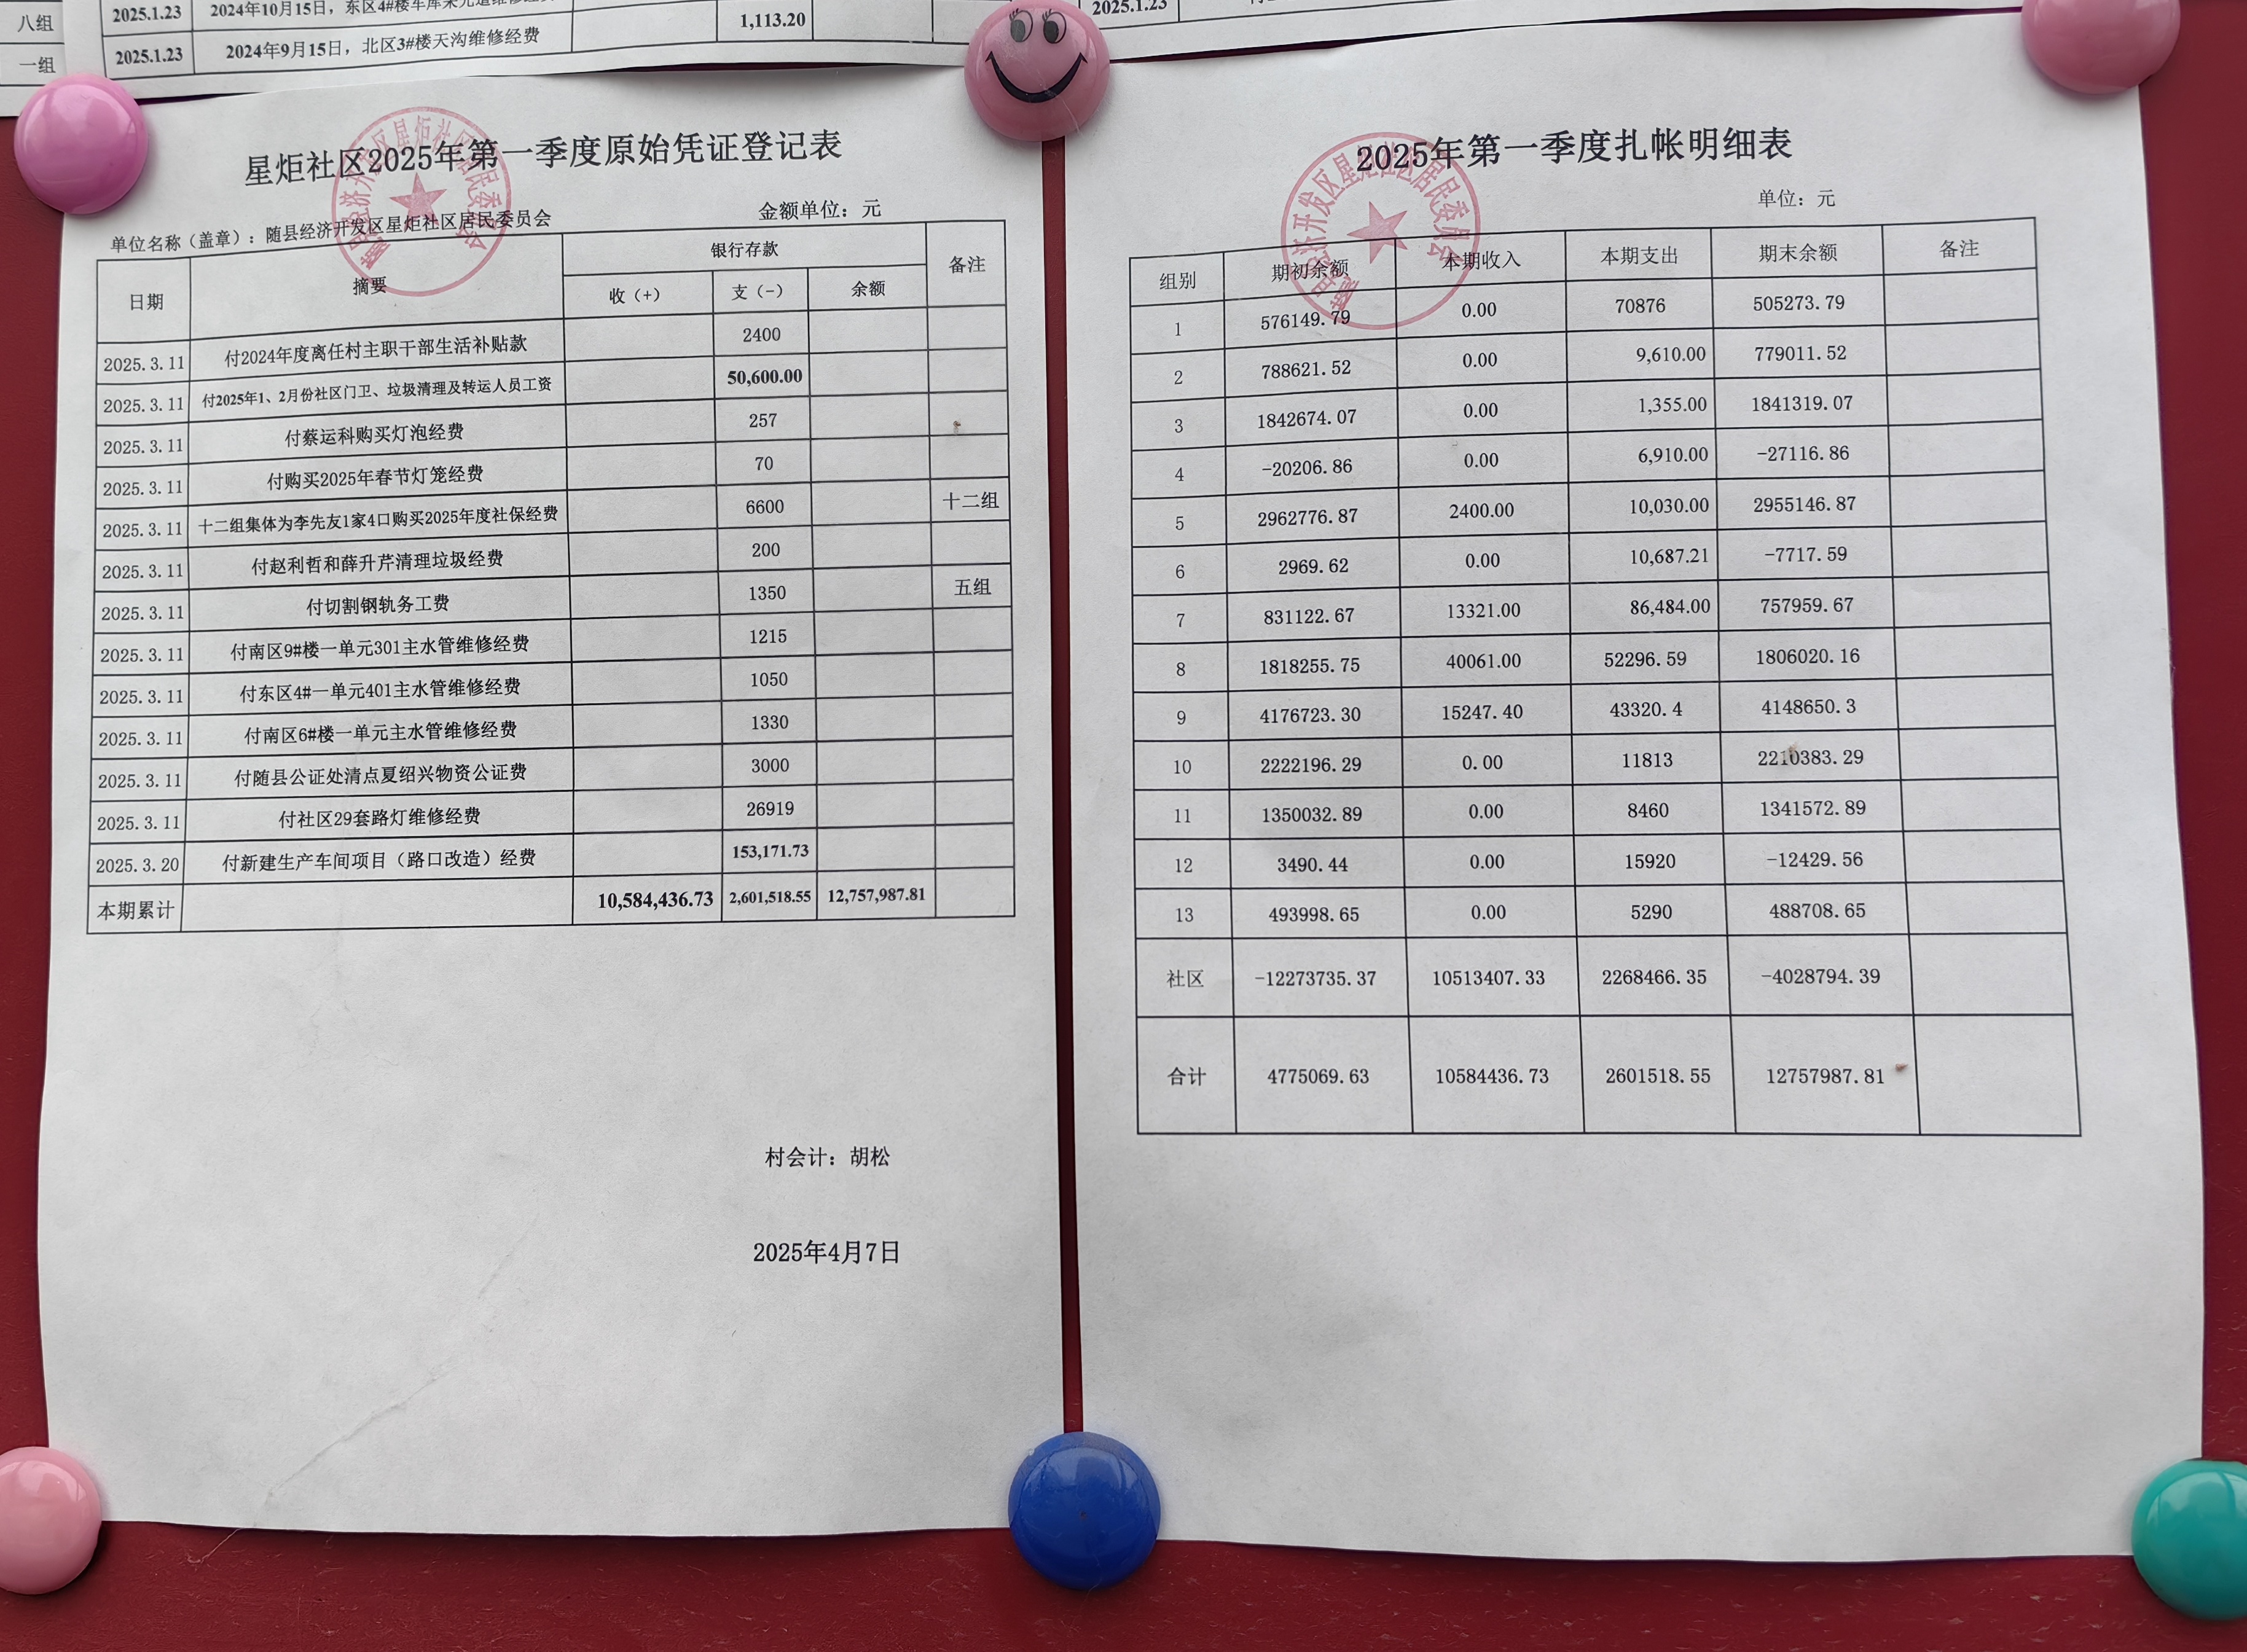 八组
2025.1.23
1,113.20
一组 2025.1.23 2024年9月15日，北区3#楼天沟维修经费
2025.1.23
星炬社区2025年第一季度原始凭证登记表
单位名称（盖章）：随县经济开发区星炬社区居民委员会 金额单位：元
日期 摘要 银行存款 备注
收（+） 支（-） 余额
2025.3.11 付2024年度离任村主职干部生活补贴款 2400
2025.3.11 付2025年1、2月份社区门卫、垃圾清理及转运人员工资 50,600.00
2025.3.11 付蔡运科购买灯泡经费 257
2025.3.11 付购买2025年春节灯笼经费 70
2025.3.11 十二组集体为李先友1家4口购买2025年度社保经费 6600 十二组
2025.3.11 付赵利哲和薛升芹清理垃圾经费 200
2025.3.11 付切割钢轨务工费 1350 五组
2025.3.11 付南区9#楼一单元301主水管维修经费 1215
2025.3.11 付东区4#一单元401主水管维修经费 1050
2025.3.11 付南区6#楼一单元主水管维修经费 1330
2025.3.11 付随县公证处清点夏绍兴物资公证费 3000
2025.3.11 付社区29套路灯维修经费 26919
2025.3.20 付新建生产车间项目（路口改造）经费 153,171.73
本期累计 10,584,436.73 2,601,518.55 12,757,987.81
村会计：胡松
2025年4月7日
2025年第一季度扎帐明细表
单位：元
组别 期初余额 本期收入 本期支出 期末余额 备注
1 576149.79 0.00 70876 505273.79
2 788621.52 0.00 9,610.00 779011.52
3 1842674.07 0.00 1,355.00 1841319.07
4 -20206.86 0.00 6,910.00 -27116.86
5 2962776.87 2400.00 10,030.00 2955146.87
6 2969.62 0.00 10,687.21 -7717.59
7 831122.67 13321.00 86,484.00 757959.67
8 1818255.75 40061.00 52296.59 1806020.16
9 4176723.30 15247.40 43320.4 4148650.3
10 2222196.29 0.00 11813 2210383.29
11 1350032.89 0.00 8460 1341572.89
12 3490.44 0.00 15920 -12429.56
13 493998.65 0.00 5290 488708.65
社区 -12273735.37 10513407.33 2268466.35 -4028794.39
合计 4775069.63 10584436.73 2601518.55 12757987.81